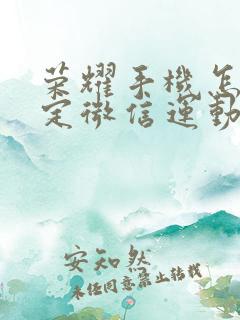 荣耀手機怎
定微信運動
安知然
未经同意禁止转载